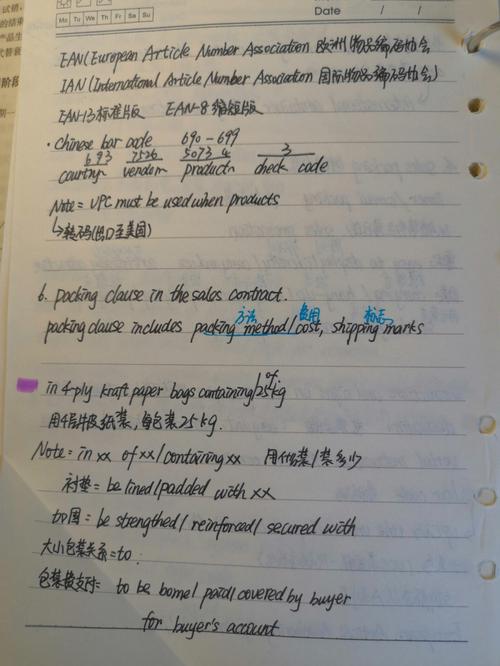 Date / /
Mo Tu We Th Fr Sa Su
EAN(European Article Number Association 欧洲物品编码协会
IAN(International Article Number Association 国际物品编码协会)
EAN-13标准版 EAN-8缩短版
· Chinese bar code 690-699
693 7526 5073 4 3
country vendor product check code
Note = UPC must be used when products
↳转码(出口至美国)
6. packing clause in the sales contract.
方法 费用 标志
packing clause includes packing method/cost, shipping marks
in 4-ply kraft paper bags containing/of 25kg
用4层牛皮纸装,每包装25kg.
Note = in xx of xx/containing xx 用什么装/装多少
衬垫 = be lined/padded with xx
加固 = be strengthed/ reinforced/ secured with
大小包装关系=to:
to be borne/ paid/ covered by buyer
for buyer's account